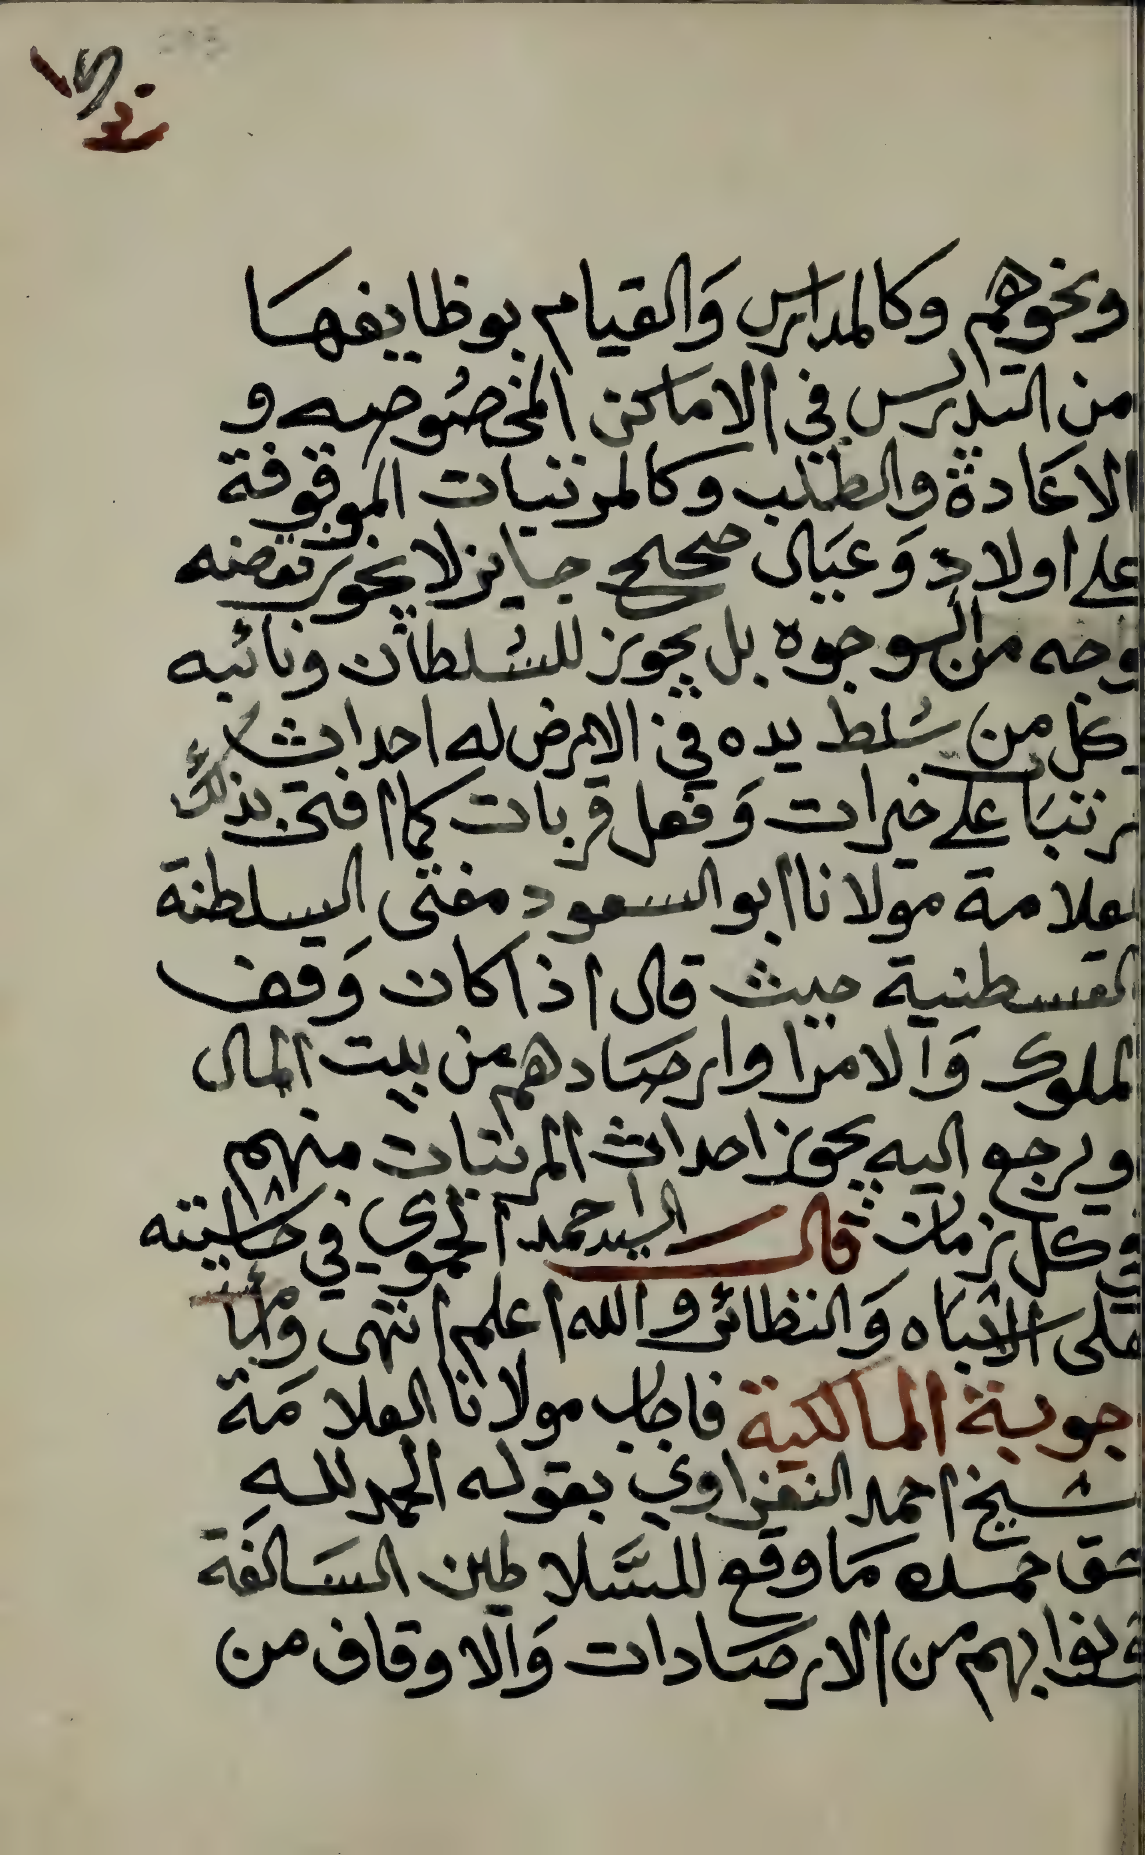 ونحوهم وكالمدارس وَالقيام بوظايفهَا
من التدريس في الاماكن المخصُوصه و
الاعَادة والطلب وكالمرتبات الموقوفة
على اولاد وَعيَال صحيح جايز لا يجوز نقضه
بوجه من الوجوه بل يجوز للسُلطان ونائبه
وكل من سُلط يده في الارض له احداث
مرتبَا على خيرات وَفعل قربات كما افتى بذلك
العلامة مولانا ابو السعود مفتى السلطنة
القسطنية حيث قال اذا كان وَقف
الملوك وَالامرا وارصَادهم من بيت المال
او يرجع اليه يجوز احداث المرتبات منهم
في كل زمان قال السيد احمد الحموي في حَاشيته
على الاشباه وَالنظائر والله اعلم انتهى وَامّا
اجوبة المالكية فاجاب مولانا العلامَة
الشيخ احمد النفزاوي بقوله الحمد للهِ
حق حمده مَا وقع للسَّلاطين السَالفَة
ونوابهم من الارصَادات وَالاوقاف من